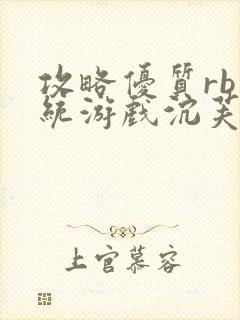 攻略優質rb
統游戲沉芙
上官慕容